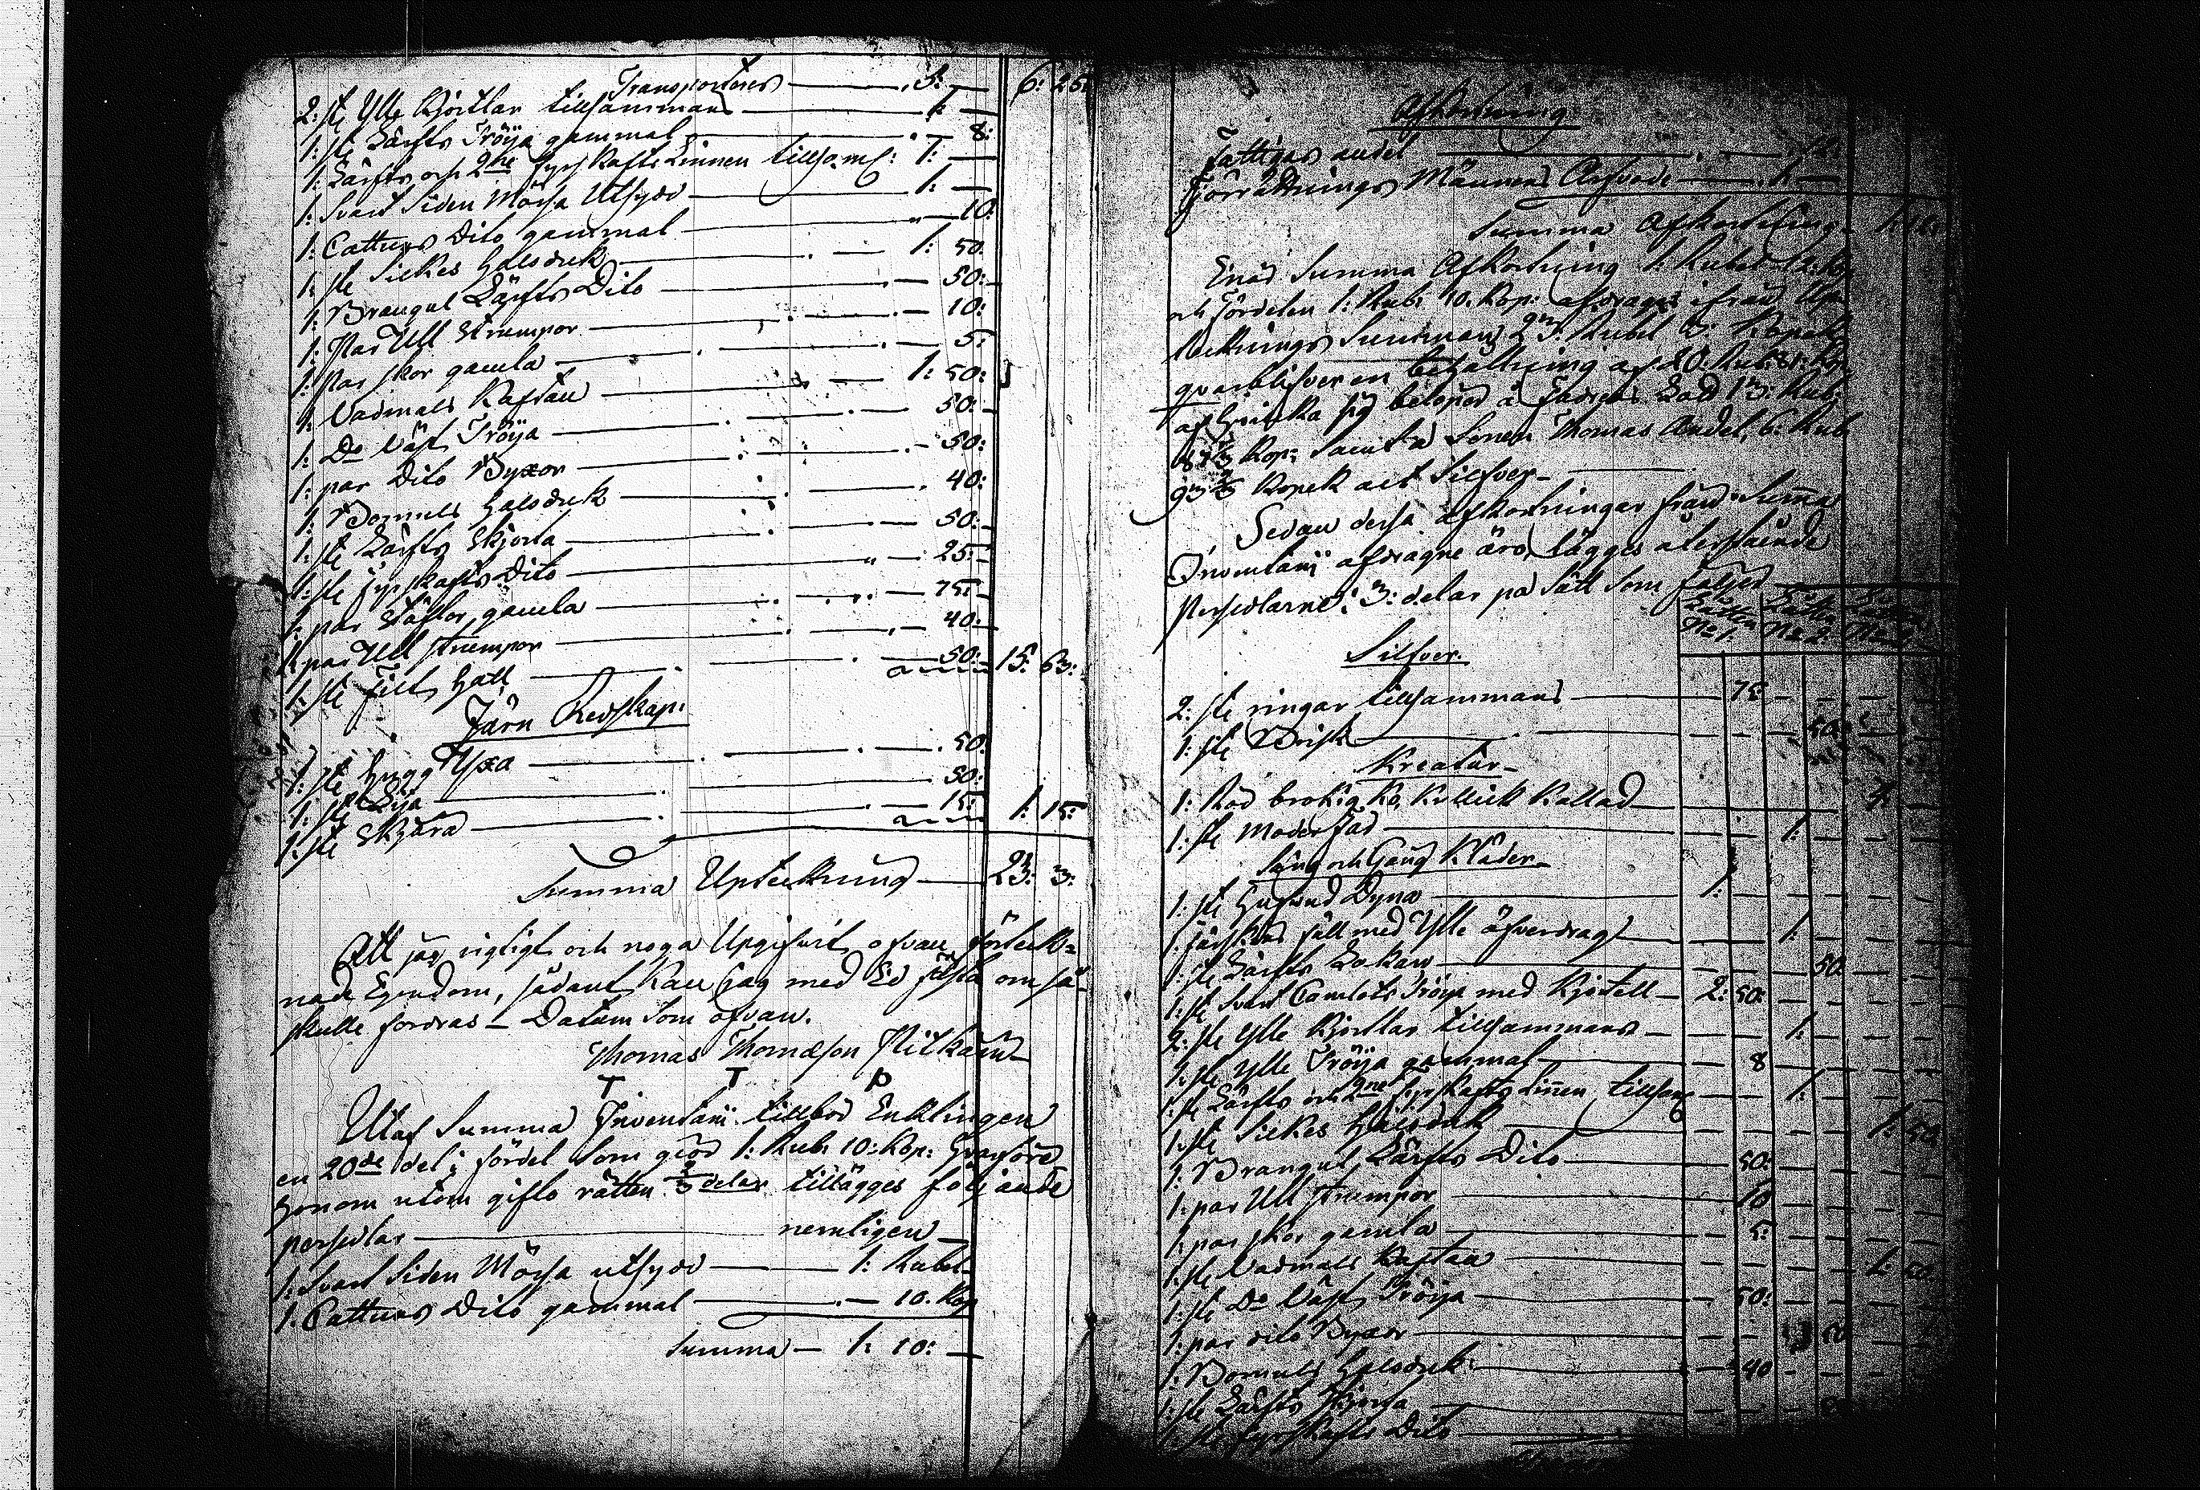 Transporteres — 5: — 6: 25:
2: ste Ylle Kjortlar tillsammans — 1: —
1: ste Lärfts Tröija gammal — 8:
1: Lärfts och 2ne fyrskafts Linnen tillsam: 1: —
1: Svart Siden Mössa Utsydd — 1: —
1: Cattuns Dito gammal — 10:
1: ste Silkes Halsduk — 1: 50:
1: Brangul Lärfts Dito — 50:
1: Par Ull Strumpor — 10:
1: Par skor gamla — 5:
1: Vadmals Kaftan — 1: 50:
1: Do Väst Tröija — 50:
1: par Dito Byxor — 50:
1: Bomuls Halsduk — 40:
1: ste Lärfts Skjorta — 50:
1: ste fyrskafts Dito — 25:
1: par Stöflor gamla — 75:
1: par Ull strumpor — 40:
1: ste Filt Hatt — 50: 15: 63:
Järn Redskap:
1: ste Hugg Yxa — 50:
1: ste Lija — 50:
1: ste Skjära — 15: 1: 15:
Summa Upteckning — 23: 3:
Att jag rigtigt och noga Upgifvit ofvan förteck=
nade Egendom, sådant kan jag med Ed fästa om så
skulle fordras — Datum som ofvan.
Thomas Thomasson
T T P
Utaf Summa Inventarii tillkod Enklingen
en 20de del i fördel som giör 1: Rub: 10: Kop: Hvarföre
honom utom gifto rätten 2/3 delar tillägges följande
persedlar — nemligen —
1: Svart Siden Mössa utsydd — 1: Rubel
1: Cattuns Dito gammal — 10. Kop
Summa — 1: 10: —
Afkortning
Fattigas andel — 12:
Förrättnings Männens Arfvode — 1: —
Summa Afkortning — 1: 12:
Enär Summa Afkortning 1: Rubel 12: Kop
och Fördelen 1: Rub: 10. Kop: afdrages ifrån Up=
tecknings Summan 23: Rubel 3: Kopek
qvarblifver en behållning af 20: Rub: 81: Kop
af Hvilka sig belöper å Fadrens Lod 13: Rub:
87 1/3 Kop: samt å Sonen Thomas Andel 6: Rub
93 2/3 Kopek alt Silfver —
Sedan dessa afkortningar från Summa
Inventarii afdragne äro, lägges återstående
Persedlarne i 3: delar på sätt som följer —
Lotten No 1. Lotten No 2. Lotten No 3.
Silfver.
2: ste ringar tillsammans — 75:
1: ste Brisk — 50:
Kreatur —
1: Röd brokig Ko, Kullick Kallad —
1: ste Moder får — 1: —
Säng och Gång Kläder —
1: ste Hufvud Dyna — 1:
1: fårskins fäll med Ylle öfverdrag — 1: —
1: ste Lärfts Lakan — 50
1: ste Svart Camlots Tröija med Kjortell — 2: 50:
2: ste Ylle Kjortlar tillsammans — 1: —
1: ste Ylle Tröija gammal — 8
1: ste Lärfts och 2ne fyrskafts Linnen tillsam — 1:
1: ste Silkes Halsduk — 1: 50
1: Brangul Lärfts Dito — 50:
1: par Ull strumpor — 10
1: par skor gamla — 5:
1: ste Vadmals Kaftan — 1: 50:
1: ste Do Väst Tröija — 50:
1: par dito Byxor — 50
1: Bomuls Halsduk: — 40
1: ste Lärfts Skjorta —
1: ste fyrskafts Dito —